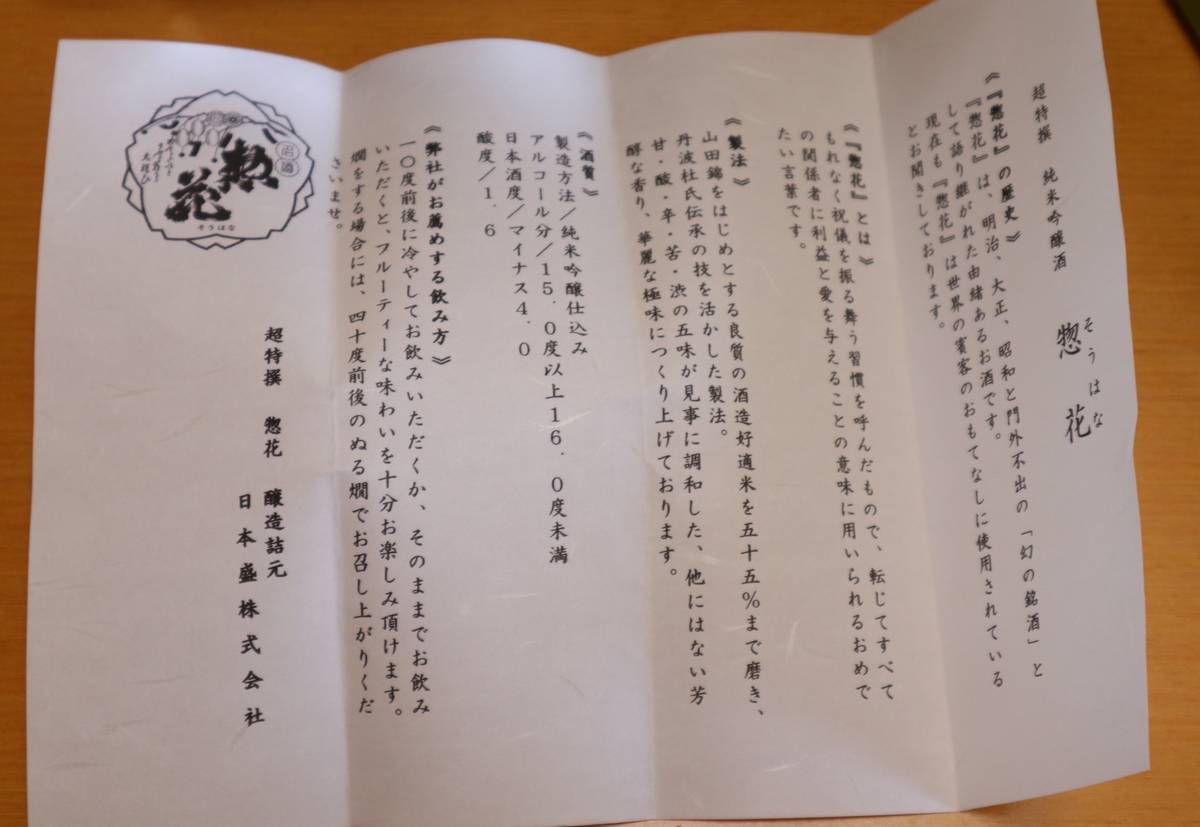 超特撰　純米吟醸酒　惣花
そうはな
《『惣花』の歴史》
『惣花』は、明治、大正、昭和と門外不出の「幻の銘酒」と
して語り継がれた由緒あるお酒です。
現在も『惣花』は世界の賓客のおもてなしに使用されている
とお聞きしております。
《『惣花』とは》
もれなく祝儀を振る舞う習慣を呼んだもので、転じてすべて
の関係者に利益と愛を与えることの意味に用いられるおめで
たい言葉です。
《製法》
山田錦をはじめとする良質の酒造好適米を五十五%まで磨き、
丹波杜氏伝承の技を活かした製法。
甘・酸・辛・苦・渋の五味が見事に調和した、他にはない芳
醇な香り、華麗な極味につくり上げております。
《酒質》
製造方法/純米吟醸仕込み
アルコール分/15.0度以上16.0度未満
日本酒度/マイナス4.0
酸度/1.6
《弊社がお薦めする飲み方》
一〇度前後に冷やしてお飲みいただくか、そのままでお飲み
いただくと、フルーティーな味わいを十分お楽しみ頂けます。
燗をする場合には、四十度前後のぬる燗でお召し上がりくだ
さいませ。
惣花
そうはな
超特撰　惣花　醸造詰元
日本盛株式会社